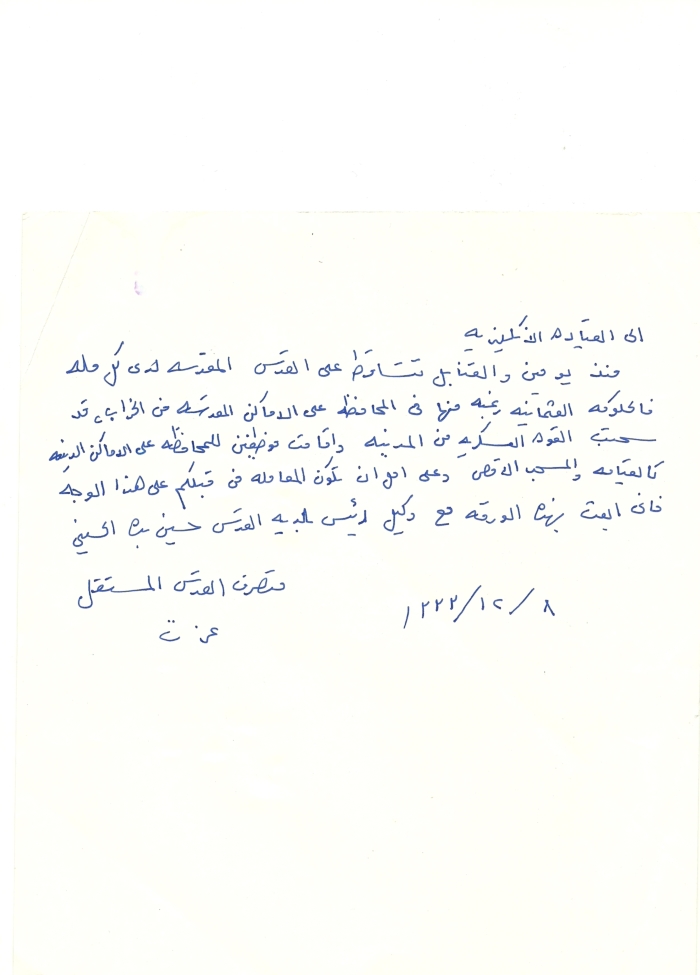 الى القياده الانكليزيه
منذ يومين والقنابل تتساقط على القدس المقدسه لدى كل مله
فالحكومه العثمانيه رغبه منها فى المحافظه على الاماكن المقدسه من الخراب قد
سحبت القوه العسكريه من المدينه واقامت موظفين للمحافظه على الاماكن الدينيه
كالقيامه والمسجد الاقصى وعلى امل ان تكون المعامله من قبلكم على هذا الوجه
فانى ابعث بهذه الورقه مع وكيل رئيس بلديه القدس حسين بك الحسيني
متصرف القدس المستقل
٨/١٢/١٣٣٣
عزت